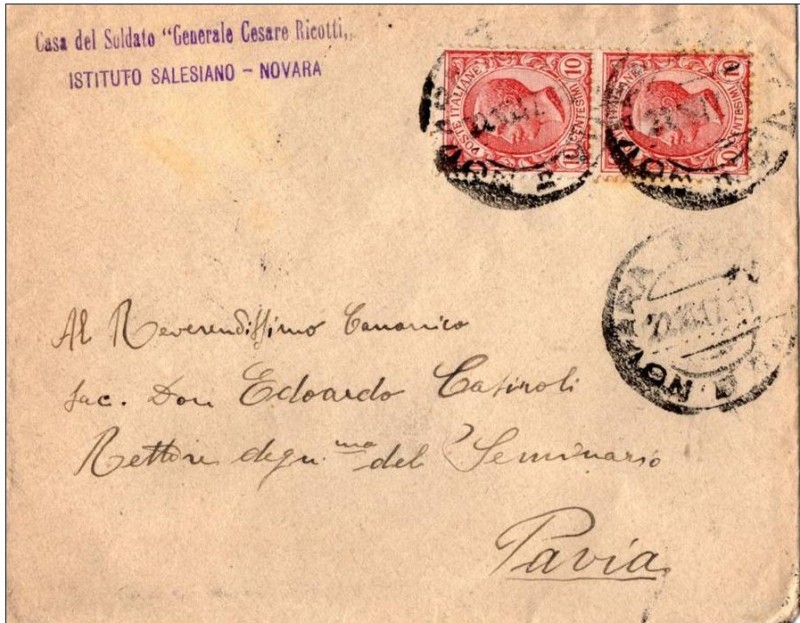 Casa del Soldato "Generale Cesare Ricotti„
ISTITUTO SALESIANO - NOVARA
POSTE ITALIANE
10 CENTESIMI 10
10 CENTESIMI 10
NOVARA
Al Reverendissimo Canonico
Sac. Don Edoardo Casiroli
Rettore degn.mo del Seminario
Pavia